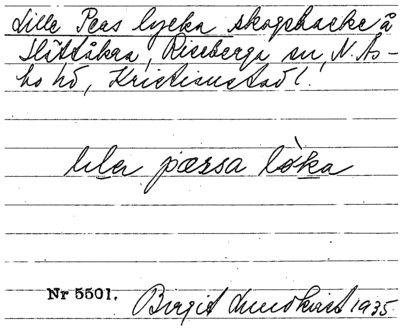 Lille Pers lycka skogsbacke å
Slättåkra, Riseberga sn, N. Ås-
bo hd, Kristianstad l.
lilə pæʀsa løka
Nr 5501. Birgit Lundkvist 1935